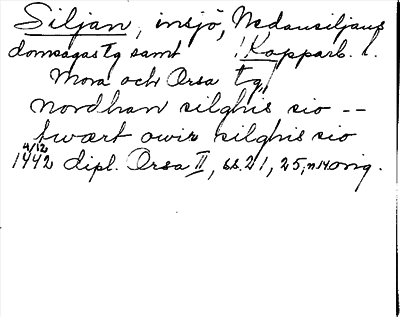 Siljan, insjö, Nedansiljans
domsagas tg samt Kopparb. l.
Mora och Orsa tg,
nordhan silghis sio --
twært owir silghis sio
1442 4/12 dipl. Orsa II, ss. 21, 25, n. 14 orig.